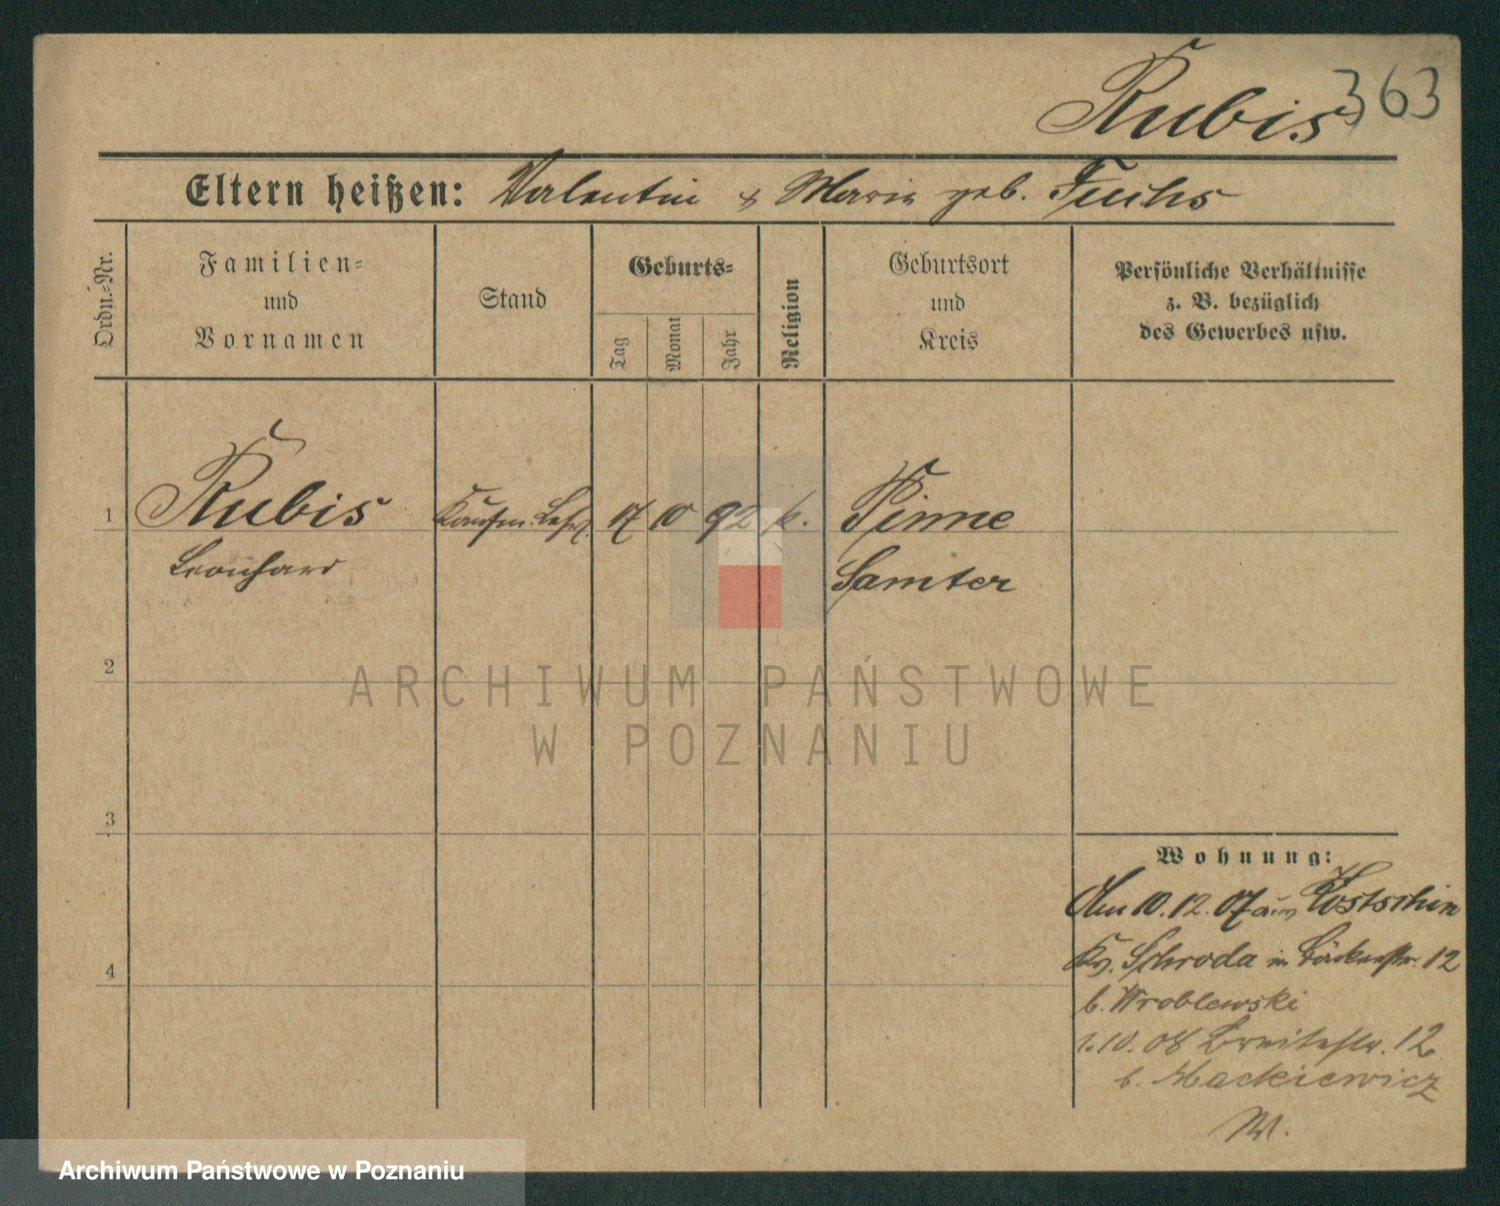 Rubis 363
Eltern heißen: Valentin & Maria geb. Fuchs
Ordn.-Nr.
Familien-
und
Vornamen
Stand
Geburts-
Tag
Monat
Jahr
Religion
Geburtsort
und
Kreis
Persönliche Verhältnisse
z. B. bezüglich
des Gewerbes usw.
1 Rubis Kaufm. Lehrl. 17 10 92 k. Pinne
Leonhard Samter
2
ARCHIWUM PAŃSTWOWE
W POZNANIU
3
Wohnung:
Am 10.12.07 aus Kostschin
Kr. Schroda in Bäckerstr. 12
b. Wroblewski
1.10.08 Breitestr. 12
b. Mackiewicz
4
Archiwum Państwowe w Poznaniu